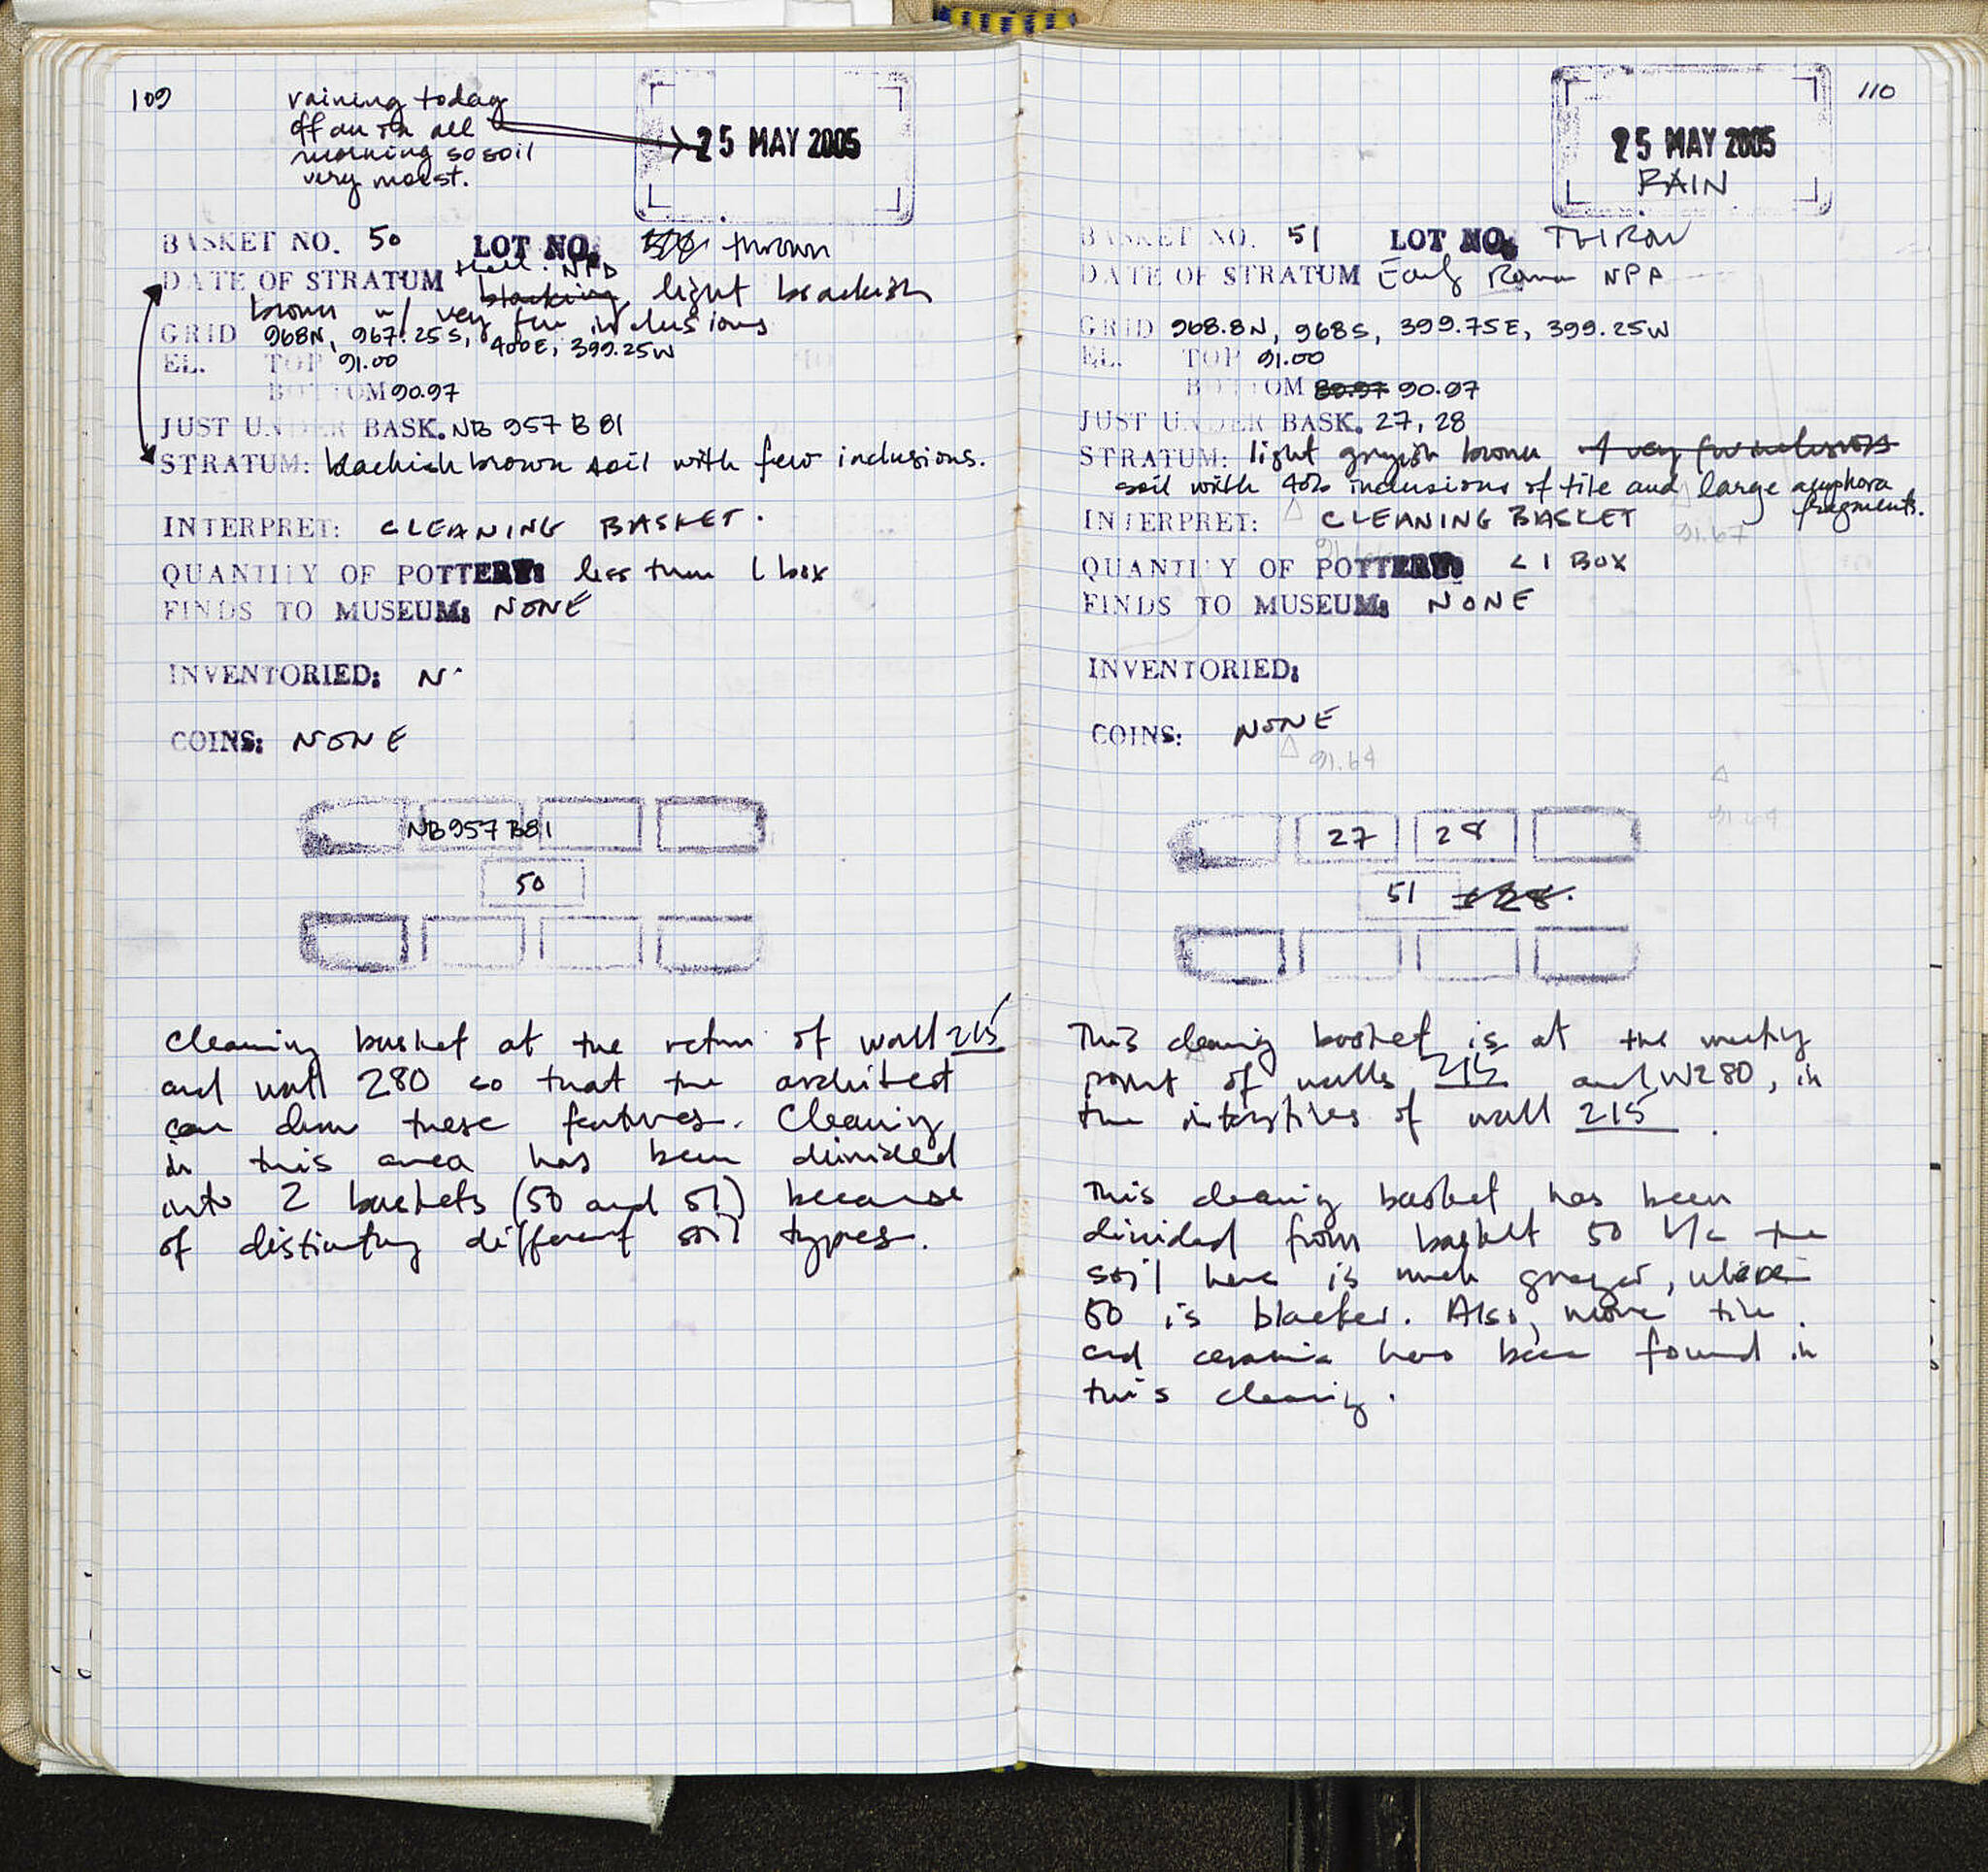 109
raining today
off an on all
morning so soil
very moist.
25 MAY 2005
BASKET NO. 50 LOT NO. thrown
DATE OF STRATUM Hell. NPD
blacking light blackish
brown w/ very few inclusions
GRID 968N, 967.25S, 400E, 399.25W
EL. TOP 91.00
BOTTOM 90.97
JUST UNDER BASK. NB 957 B 81
STRATUM: blackish brown soil with few inclusions.
INTERPRET: CLEANING BASKET.
QUANTITY OF POTTERY: less than 1 box
FINDS TO MUSEUM: NONE
INVENTORIED: N
COINS: NONE
NB957 B81
50
Cleaning basket at the return of wall 215
and wall 280 so that the architect
can draw these features. Cleaning
in this area has been divided
into 2 baskets (50 and 51) because
of distinctly different soil types.
110
25 MAY 2005
RAIN
BASKET NO. 51 LOT NO. THROW
DATE OF STRATUM Early Roman NPA
GRID 968.8N, 968S, 399.75E, 399.25W
EL. TOP 91.00
BOTTOM 89.97 90.97
JUST UNDER BASK. 27, 28
STRATUM: light grayish brown w/ very few inclusions
soil with 40% inclusions of tile and large amphora
fragments.
INTERPRET: CLEANING BASKET
91.67
QUANTITY OF POTTERY: < 1 BOX
FINDS TO MUSEUM: NONE
INVENTORIED:
COINS: NONE
91.64
27 28
51 28.
This cleaning basket is at the meeting
point of walls 215 and W280, in
the interstices of wall 215.
This cleaning basket has been
divided from basket 50 b/c the
soil here is much grayer, where
50 is blacker. Also, more tile
and ceramic has been found in
this cleaning.